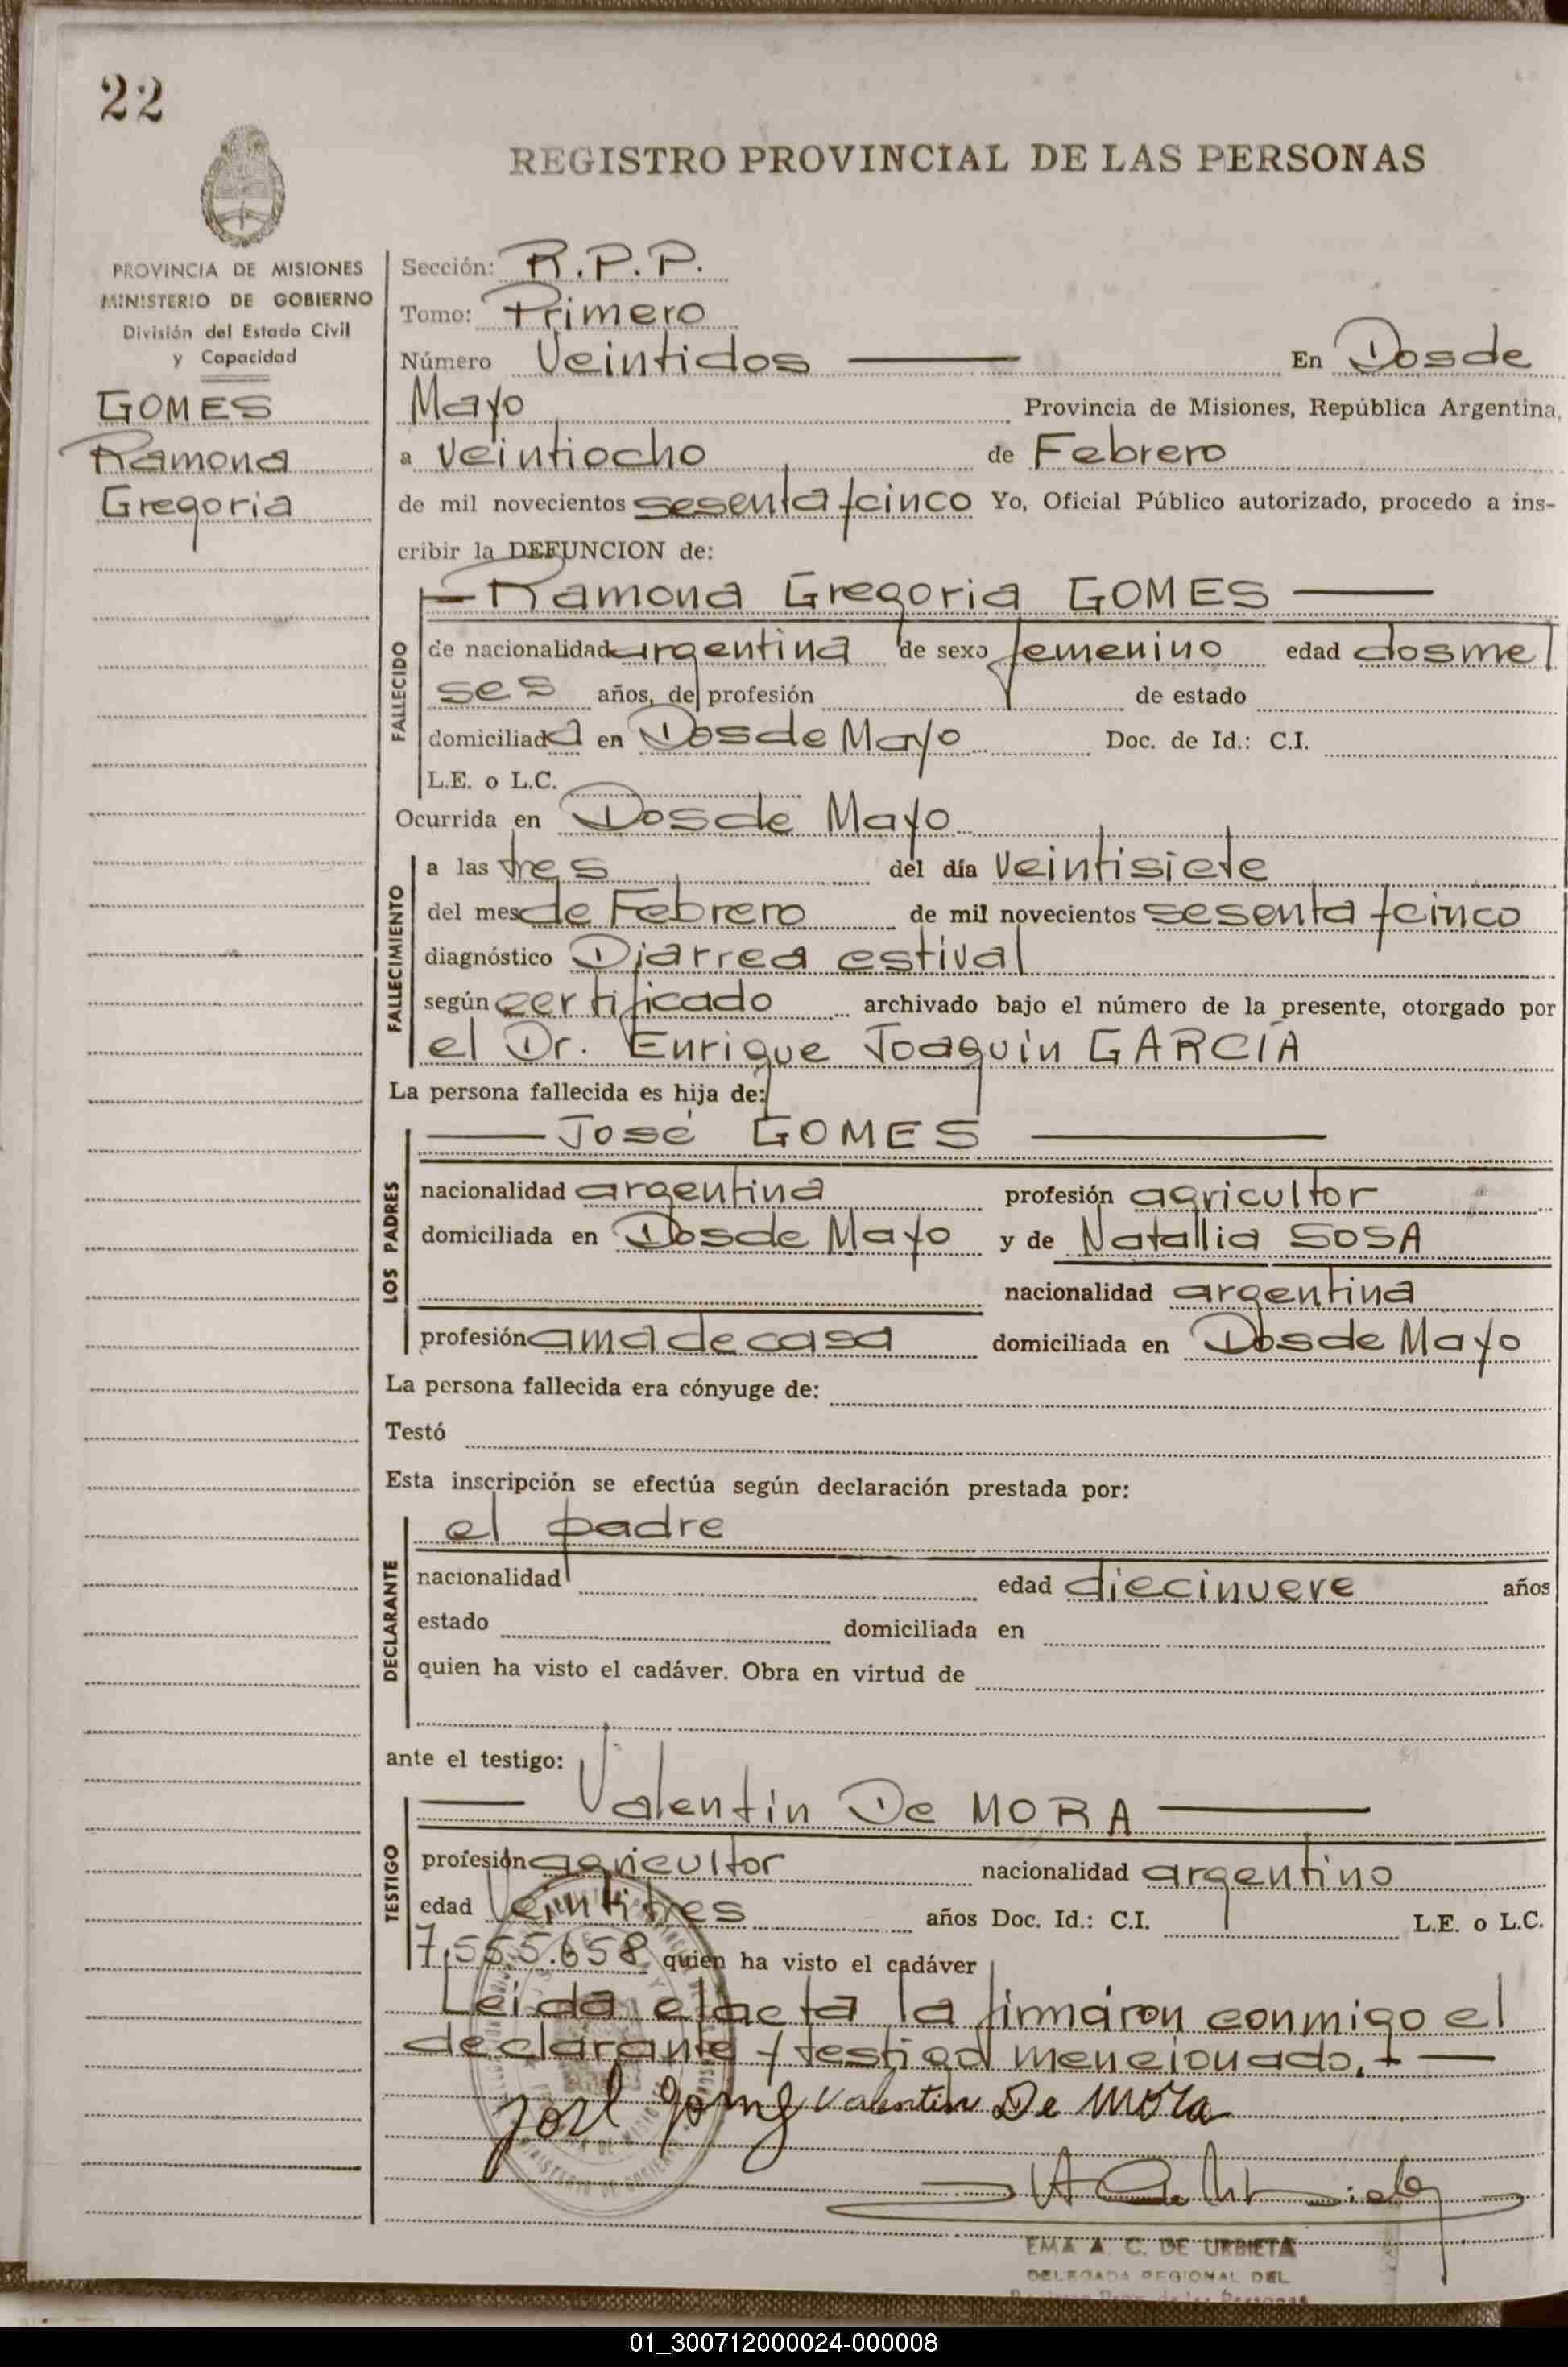 22
REGISTRO PROVINCIAL DE LAS PERSONAS
PROVINCIA DE MISIONES
MINISTERIO DE GOBIERNO
División del Estado Civil
y Capacidad
GOMES
Ramona
Gregoria
Sección: R.P.P.
Tomo: Primero
Número Veintidos En Dos de
Mayo Provincia de Misiones, República Argentina,
a veintiocho de Febrero
de mil novecientos sesenta y cinco Yo, Oficial Público autorizado, procedo a ins-
cribir la DEFUNCION de:
Ramona Gregoria GOMES
FALLECIDO
de nacionalidad argentina de sexo femenino edad dos me
ses años, de profesión de estado
domiciliada en Dos de Mayo Doc. de Id.: C.I.
L.E. o L.C.
Ocurrida en Dos de Mayo
FALLECIMIENTO
a las tres del día veintisiete
del mes de Febrero de mil novecientos sesenta y cinco
diagnóstico Diarrea estival
según certificado archivado bajo el número de la presente, otorgado por
el Dr. Enrique Joaquín GARCÍA
La persona fallecida es hija de:
José GOMES
LOS PADRES
nacionalidad argentina profesión agricultor
domiciliada en Dos de Mayo y de Natallia SOSA
nacionalidad argentina
profesión ama de casa domiciliada en Dos de Mayo
La persona fallecida era cónyuge de:
Testó
Esta inscripción se efectúa según declaración prestada por:
el padre
DECLARANTE
nacionalidad edad diecinueve años
estado domiciliada en
quien ha visto el cadáver. Obra en virtud de
ante el testigo:
Valentín De MORA
TESTIGO
profesión agricultor nacionalidad argentino
edad Veintitres años Doc. Id.: C.I. L.E. o L.C.
7.555.658 quien ha visto el cadáver
Leida el acta la firmaron conmigo el
declarante y testigo mencionado.
José Gomes Valentin De Mora
EMA A. C. DE URBIETA
DELEGADA REGIONAL DEL
01_300712000024-000008